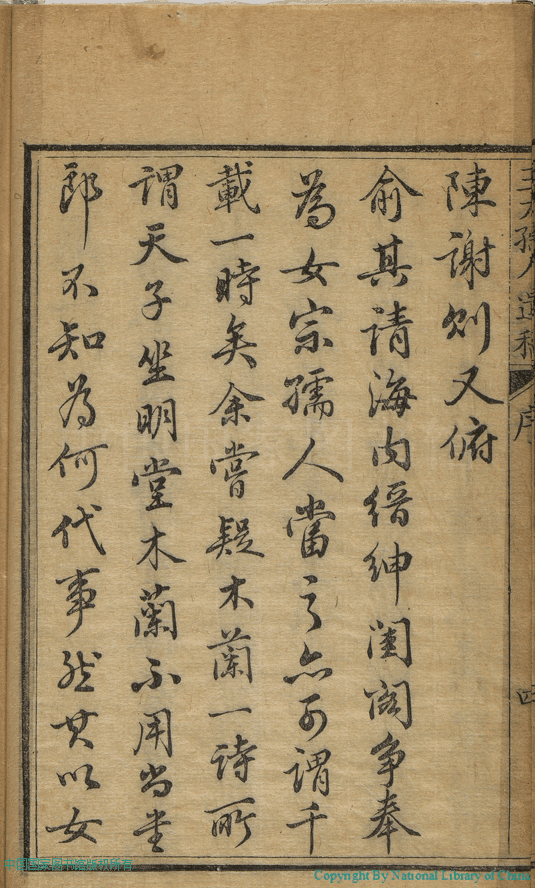 陳謝則又俯
俞其請海内縉紳閨閣争奉
為女宗孺人當之亦可謂千
載一時矣余嘗疑木蘭一詩所
謂天子坐明堂木蘭不用尚書
郎不知為何代事然其以女
孺人遺稿
序
四
中国国家图书馆版权所有
Copyright By National Library of China